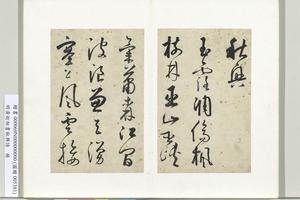 秋興
玉露凋傷楓
樹林巫山巫峽
氣蕭森江間
波浪兼天湧
塞上風雲接